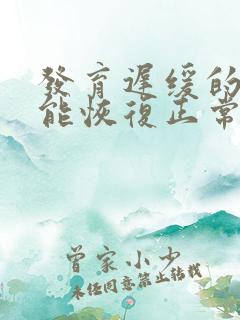 發育遲緩的
能恢復正常
曾家小少
未任同意禁止转载